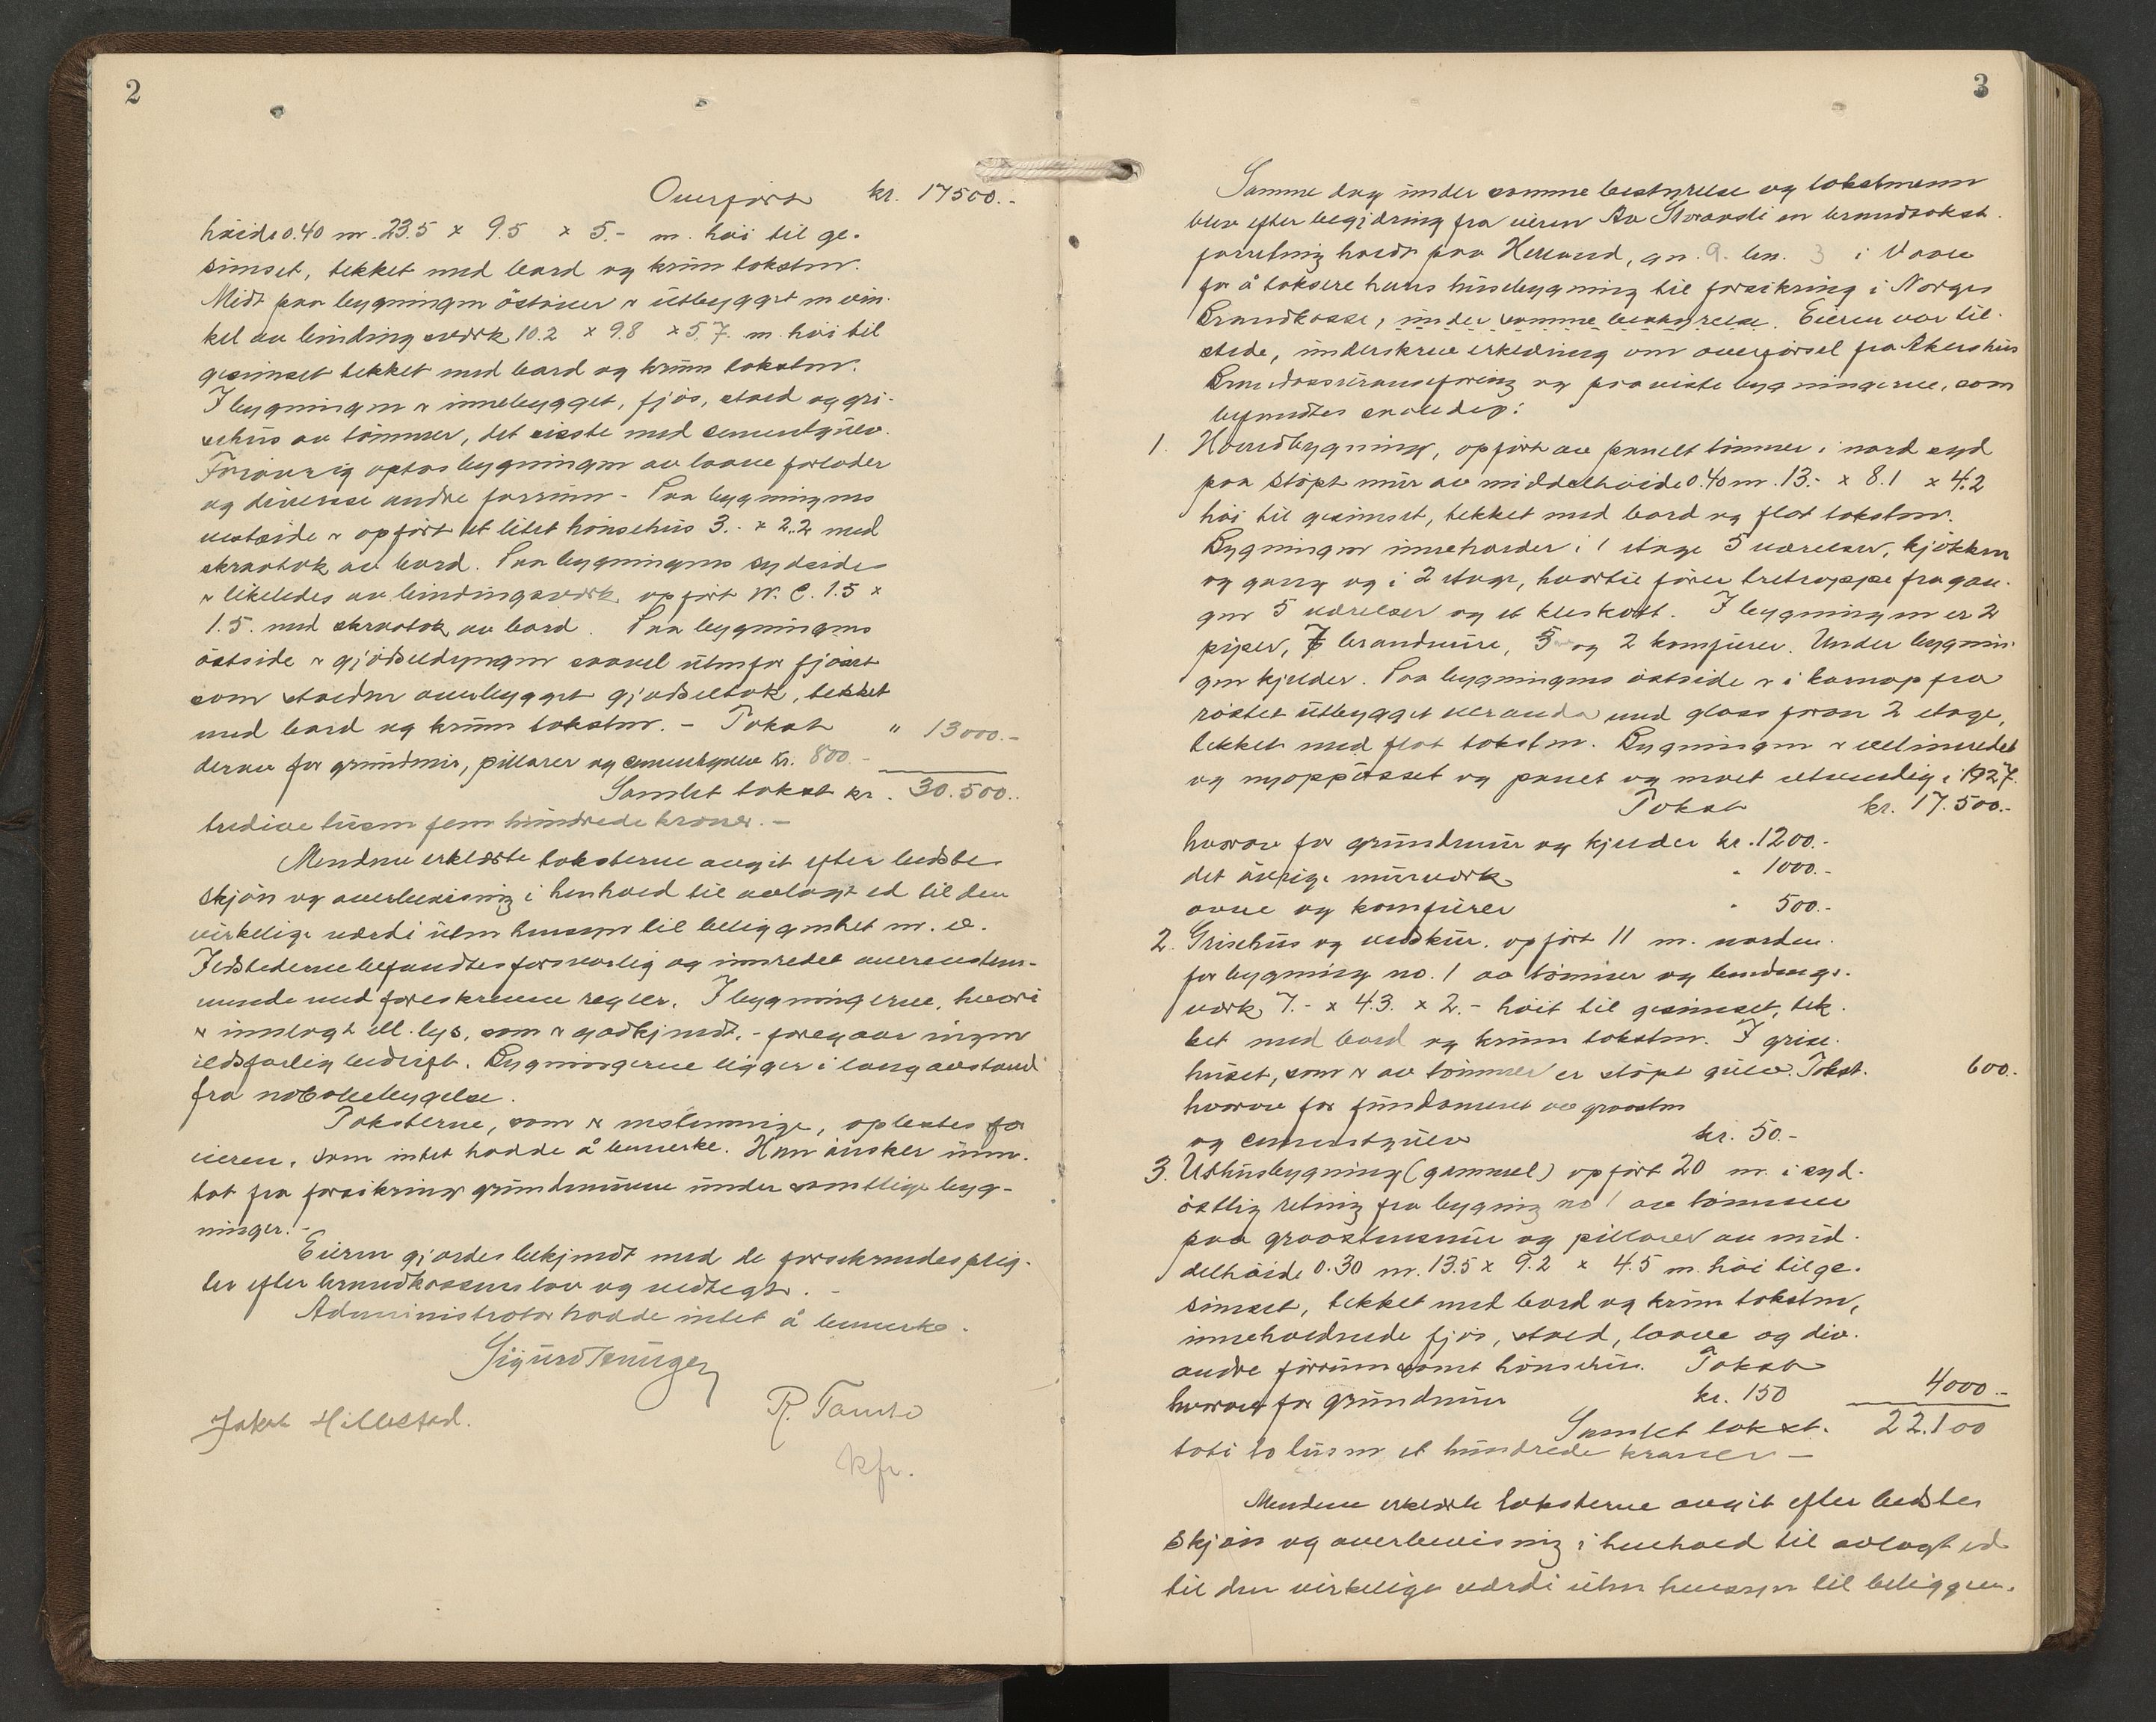 2
Overført kr. 17500.-
höide 0.40 m. 23.5 x 9.5 x 5.- m. høi til ge-
simset, tekket med bord og krum takstm.
Midt paa bygningen östover er utbygget en vin-
kel av bindingsverk 10.2 x 9.8 x 5.7. m. høi til
gesimset tekket med bord og krum takstm.
I bygningen er innebygget, fjös, stald og gri-
sehus av tömmer, det siste med sementgulv.
Forövrig optas bygningen av laave forlader
og diverse andre forrum. - Paa bygningens
vestside er opført et litet hönsehus 3.- x 2.2 med
skraatak av bord. Paa bygningens sydside
er likeledes av bindingsverk opført W. C. 1.5 x
1.5. med skraatak av bord. Paa bygningens
östside er gjödseldyngen saavel utenfor fjöset
som stalden overbygget gjödseltak, tekket
med bord og krum takstm. - Takst " 13000.-
derav for grundmur, pillarer og cementgulv kr. 800.-
Samlet takst kr. 30.500..
tredive tusen fem hundrede kroner. -
Mendene erklærte taksterne avgit efter bedste
skjön og overbevisning i henhold til avlagt ed til den
virkelige værdi uten hensyn til beliggenhet m. v.
Ildstederne befandtes forsvarlig og innredet overensstem-
mende med foreskrevne regler. I bygningerne, hvori
er innlagt ell. lys, som er godkjendt, - foregaar ingen
ildsfarlig bedrift. Bygningerne ligger i lang avstand
fra nabobebygelse.
Taksterne, som er enstemmige, oplestes for
eieren, som intet hadde å bemerke. Han ønsker unn-
tat fra forsikring grundmurene under samtlige byg-
ninger. -
Eieren gjordes bekjendt med de forsikredes plig-
ter efter brandkassens lov og vedtegt. -
Administrator hadde intet å bemerke.
Jakob Hillestad.
R.
kfr.
3
Samme dag under samme bestyrelse og takstmenn
blev efter begjæring fra eieren en brandtakst-
forretning holdt paa Helland, gn. 9. bn. 3 i Vaale
for å taksere hans husebygning til forsikring i Norges
Brandkasse, under samme bestyrelse. Eieren var til-
stede, underskrev erklæring om overförsel fra Akershus
Brandassuranseforening og paaviste bygningerne, som
befandtes saaledes:
1. Hovedbygning, opført av panelt tömmer i nord syd
paa stöpt mur av middelhöide 0.40 m. 13.- x 8.1 x 4.2
høi til gesimset, tekket med bord og flat takstm.
Bygningen inneholder i 1 etage 5 værelser, kjökken
og gang og i 2 etage, hvortil förer tretrappe fra gan-
gen 5 værelser og et kleskott. I bygningen er 2
piper, 7 brandmure, 5 og 2 komfurer. Under bygnin-
gen kjelder. Paa bygningens östside er i karnap fra
röstet utbygget veranda med glass foran 2 etage,
tekket med flat takstm. Bygningen er vel innredet
og nyoppusset og panelt og malt utvendig i 1927.
Takst kr. 17.500.-
hvorav for grundmur og kjelder kr. 1200.-
det övrige murverk " 1000.-
ovne og komfurer " 500.-
2. Grisehus og vedskur. opført 11 m. norden-
for bygning no. 1 av tömmer og bindings-
verk 7.- x 4.3. x 2.- høit til gesimset, tek-
ket med bord og krum takstm. I grise-
huset, som er av tömmer er stöpt gulv. Takst. 600.-
hvorav for fundament av graasten
og cementgulv kr. 50.-
3. Uthusbygning (gammel) opført 20 m. i syd-
östlig retning fra bygning no 1 av tömmer
paa graastensmur og pillarer av mid-
delhöide 0.30 m. 13.5 x 9.2 x 4.5 m. høi til ge-
simset, tekket med bord og krum takstm,
inneholdende fjös, stald, laave og div.
andre forrum samt hönsehus. Takst 4000.-
hvorav for grundmur kr. 150
Samlet takst. 22.100
toti to tusen et hundrede kroner -
Mendene erklærte taksterne avgit efter bedste
skjön og overbevisning i henhold til avlagt ed
til den virkelige værdi uten hensyn til beliggen-